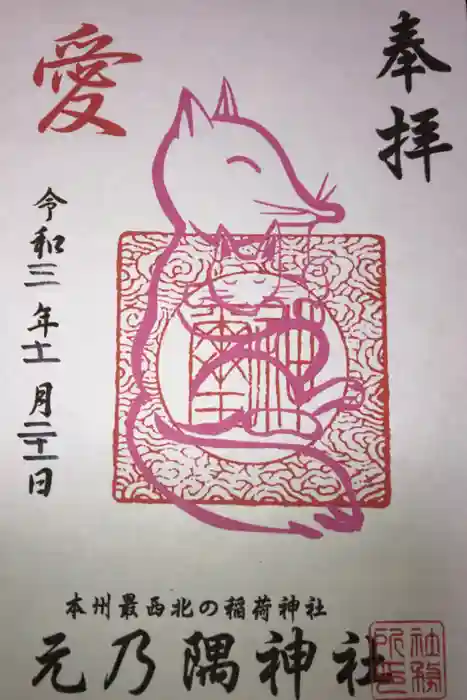 奉拝
愛
令和三年十一月二十一日
本州最西北の稲荷神社
元乃隅神社
社務所印